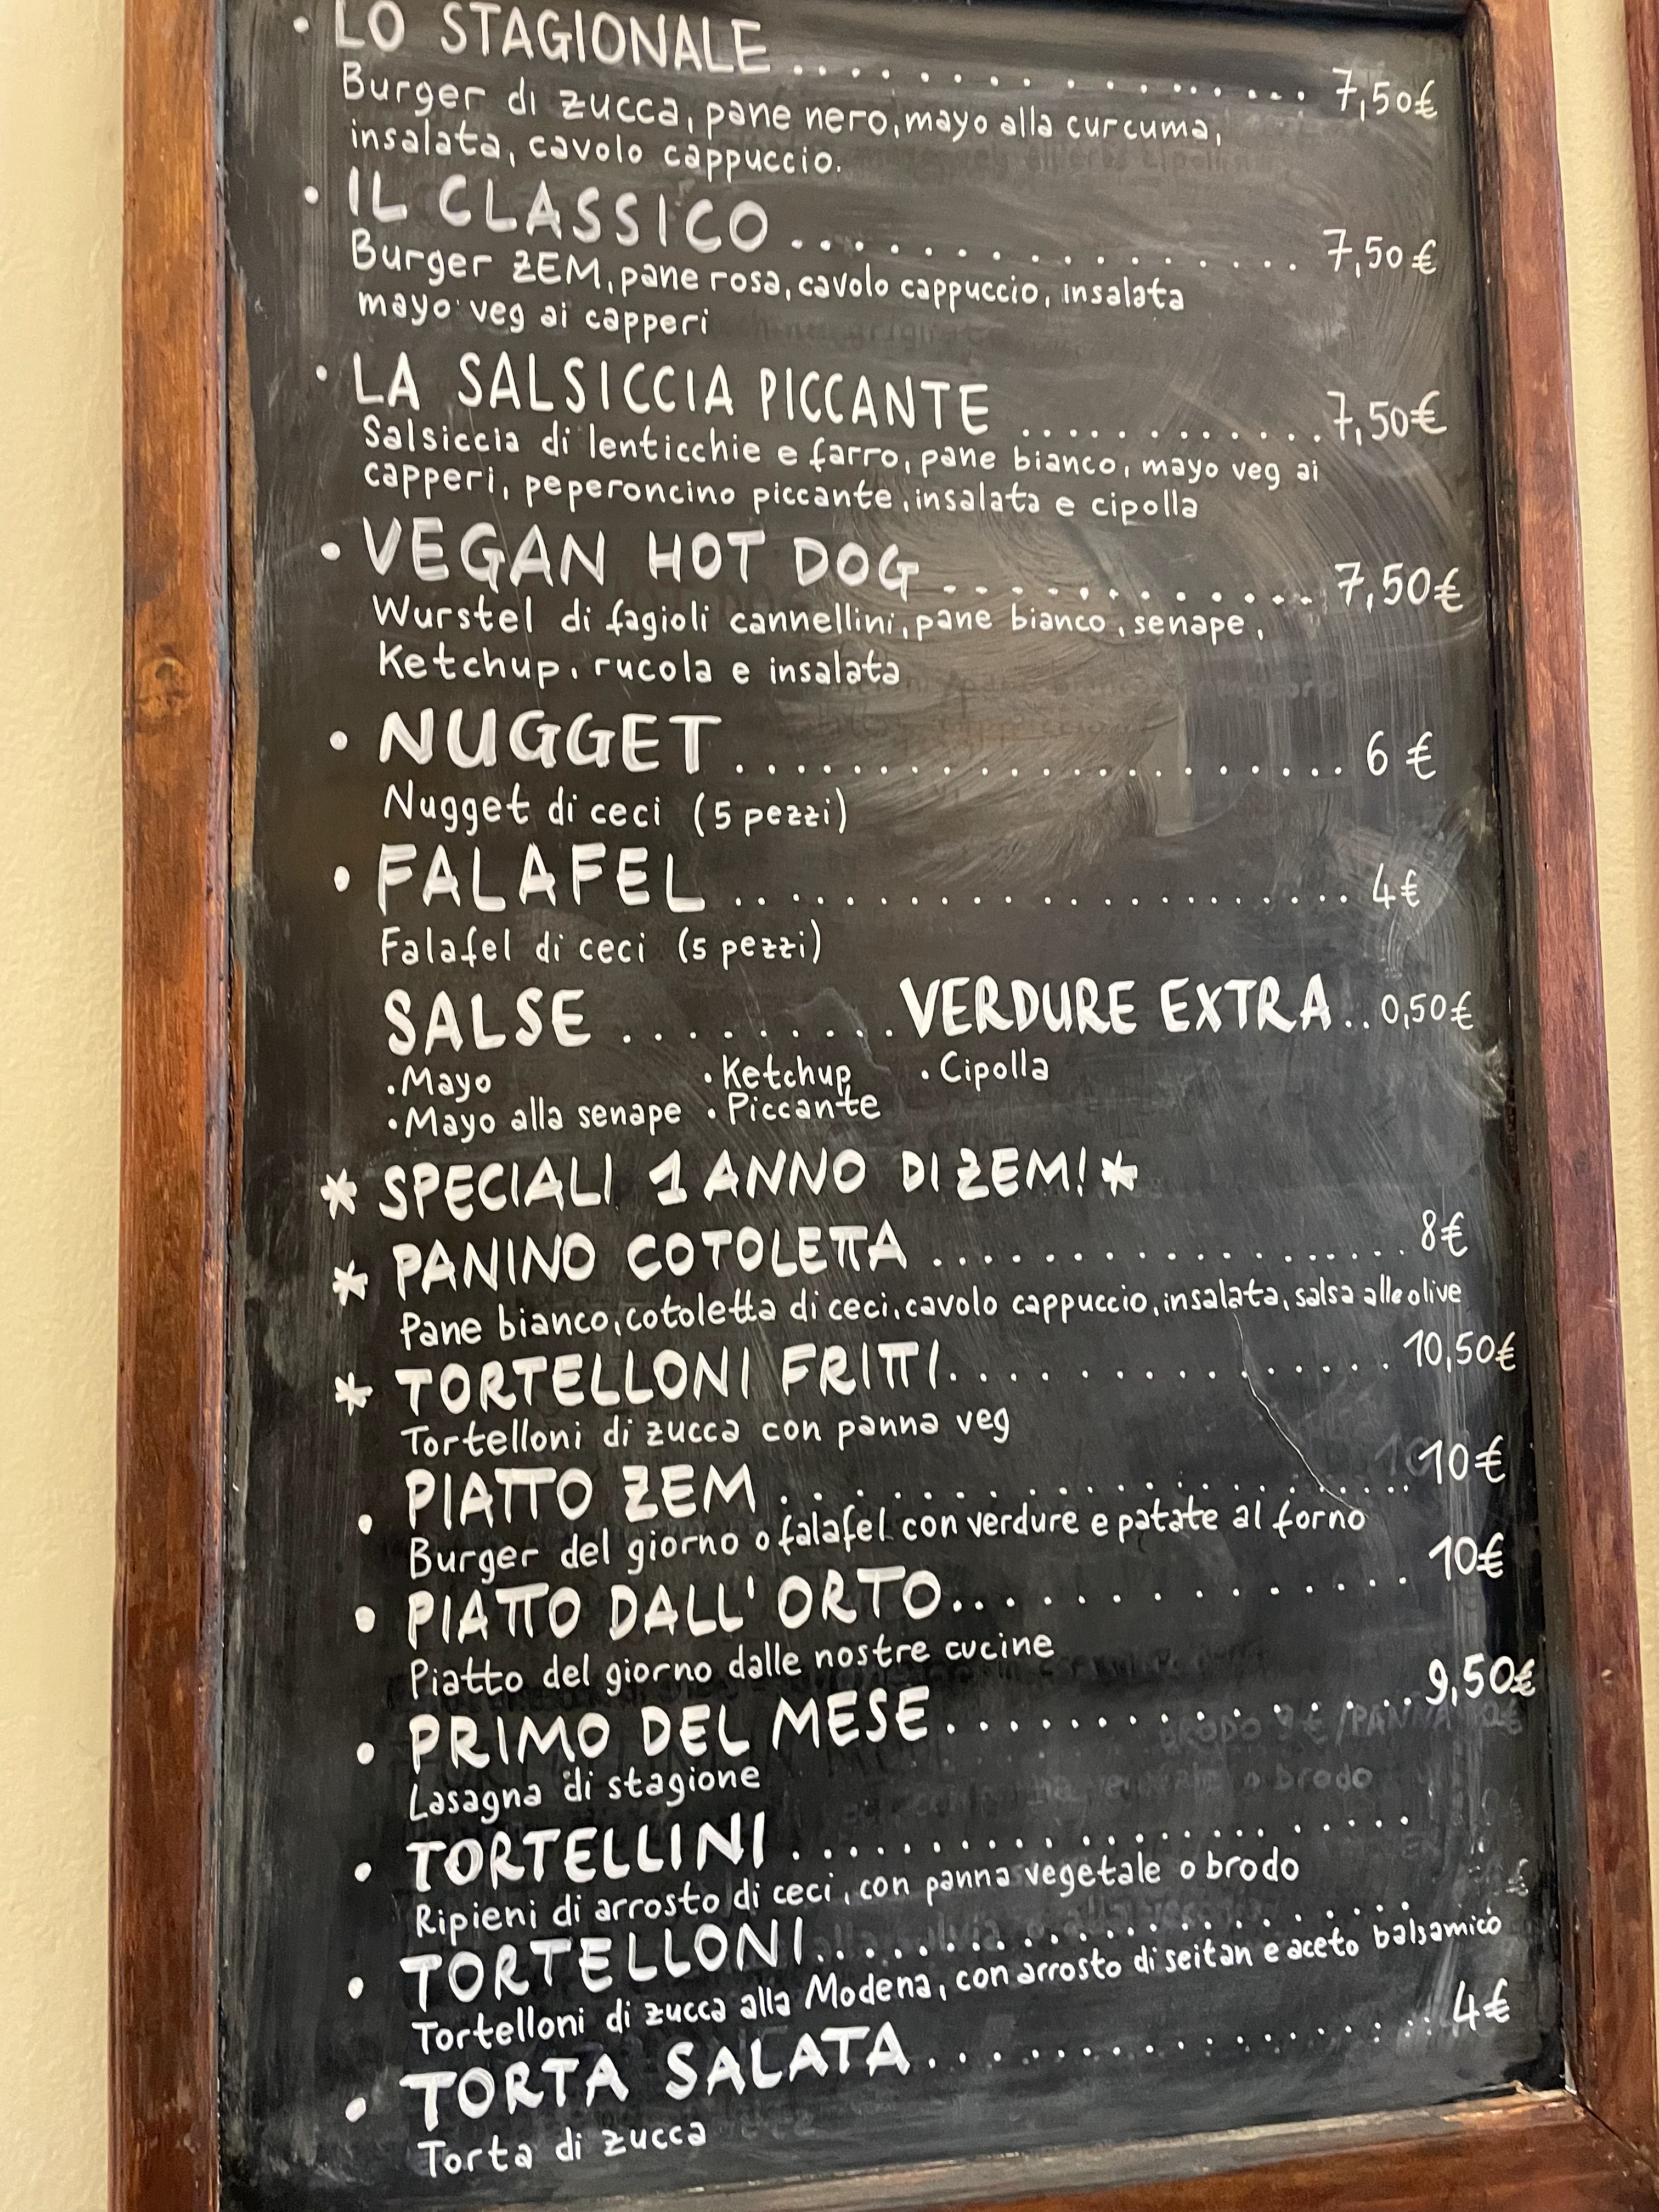 • LO STAGIONALE .................. 7,50€
Burger di zucca, pane nero, mayo alla curcuma,
insalata, cavolo cappuccio.
• IL CLASSICO .................. 7,50€
Burger ZEM, pane rosa, cavolo cappuccio, insalata
mayo veg ai capperi
• LA SALSICCIA PICCANTE ............ 7,50€
Salsiccia di lenticchie e farro, pane bianco, mayo veg ai
capperi, peperoncino piccante, insalata e cipolla
• VEGAN HOT DOG ............. 7,50€
Wurstel di fagioli cannellini, pane bianco, senape,
Ketchup, rucola e insalata
• NUGGET ...................... 6 €
Nugget di ceci (5 pezzi)
• FALAFEL ....................... 4€
Falafel di ceci (5 pezzi)
SALSE .......... VERDURE EXTRA .. 0,50€
• Mayo • Ketchup • Cipolla
• Mayo alla senape • Piccante
* SPECIALI 1 ANNO DI ZEM! *
* PANINO COTOLETTA .................. 8€
Pane bianco, cotoletta di ceci, cavolo cappuccio, insalata, salsa alle olive
* TORTELLONI FRITTI ................ 10,50€
Tortelloni di zucca con panna veg
• PIATTO ZEM ...................... 10€
Burger del giorno o falafel con verdure e patate al forno
• PIATTO DALL'ORTO ................ 10€
Piatto del giorno dalle nostre cucine
• PRIMO DEL MESE .................. 9,50€
Lasagna di stagione
• TORTELLINI ......................
Ripieni di arrosto di ceci, con panna vegetale o brodo
• TORTELLONI ......................
Tortelloni di zucca alla Modena, con arrosto di seitan e aceto balsamico
• TORTA SALATA ................... 4€
Torta di zucca